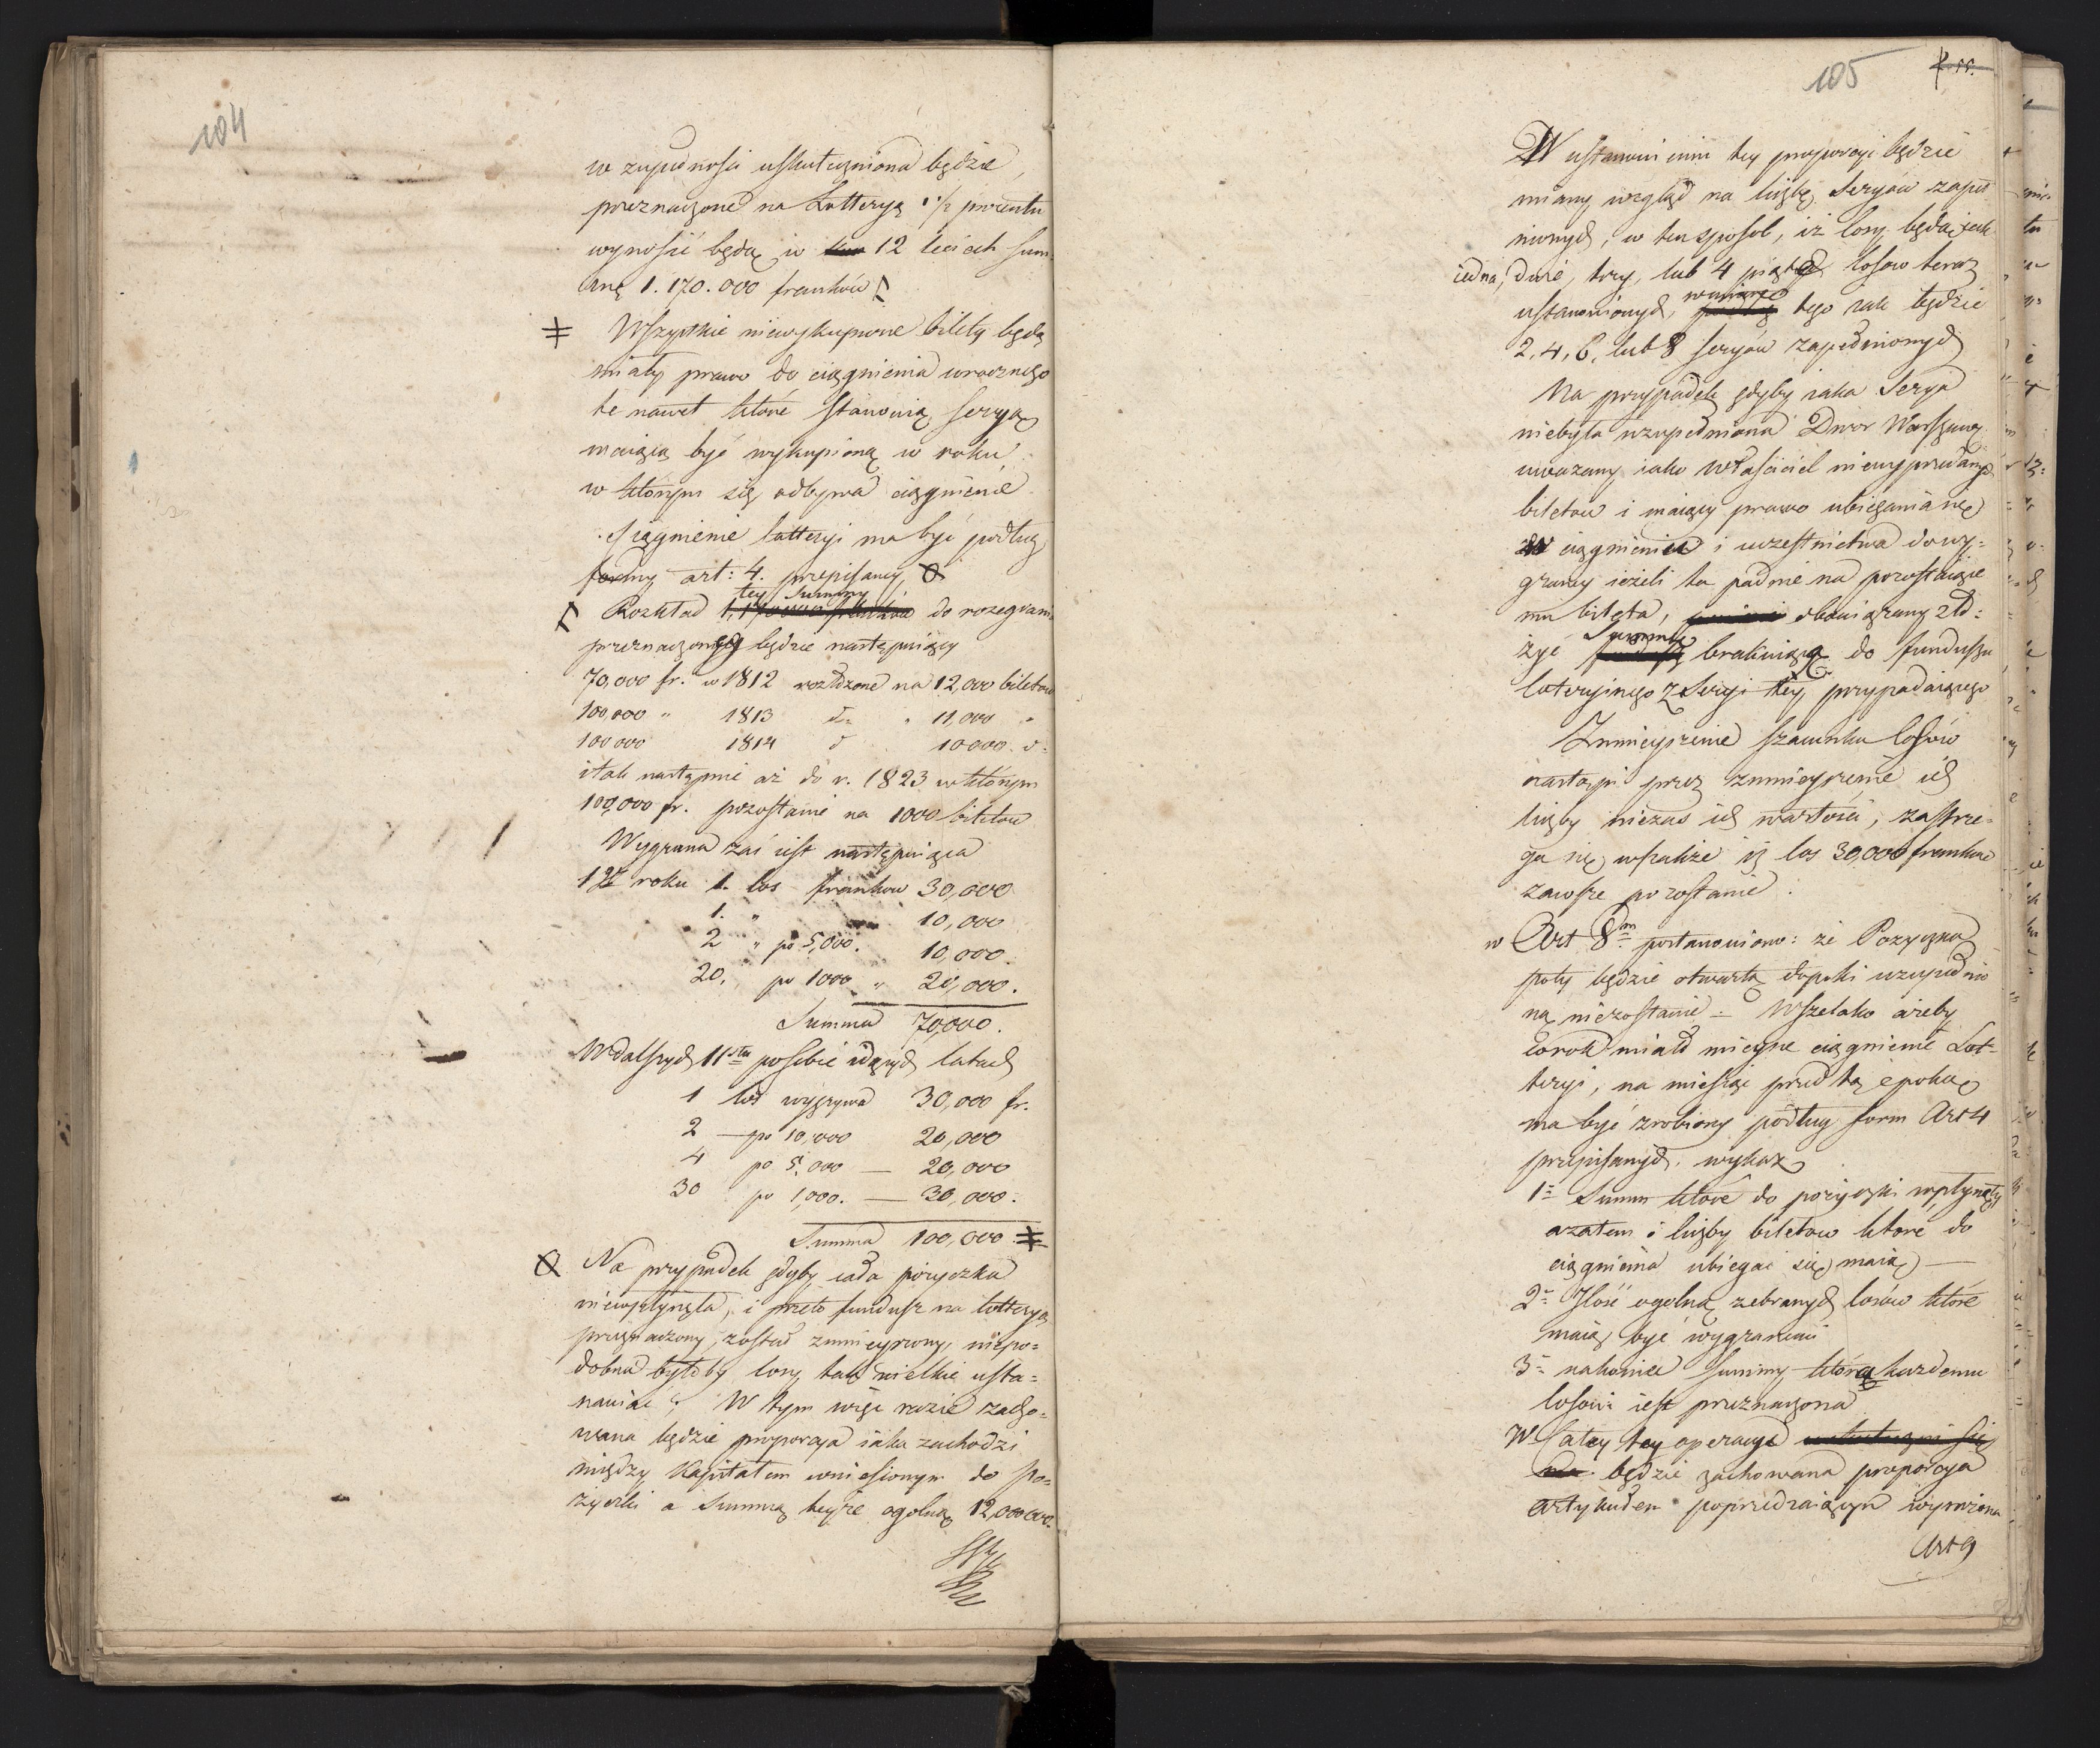 104
w zupełnosci uskuteczniona będzie,
przeznaczone na Lotteryą 1 1/2 procentu
wynosić będą w 12 leciech sum-
mę 1.170.000 franków
Wszystkie niewykupione bilety będą
miały prawo do ciągnienia corocznego
te nawet które stanowią seryą
maiącą być wykupioną w roku
w którym się odbywa ciągnienie
Ciągnienie lotteryi ma być podług
formy art: 4. przepisaney,
tey Summy
Rozkład 1,170,000 franków do rozegrania
przeznaczoney będzie następuiący
70,000 fr. w 1812 rozłożone na 12,000 biletow
100,000 " 1813 do " 11,000 "
100 000 1814 d 10000. d:
i tak następnie aż do r. 1823 w którym
100,000 fr. pozostanie na 1000 biletow
Wygrana zaś iest następuiąca
1go roku 1. los frankow 30,000
1. " 10,000
2 " po 5,000. 10,000
20. po 1000 " 20,000.
Summa 70,000.
W dalszych 11stu po sobie idących latach
1 los wygrywa 30,000 fr.
2 — po 10,000 20,000
4 po 5.000 — 20,000
30 po 1,000. — 30,000.
Summa 100,000
Na przypadek gdyby cała pożyczka
niewpłynęła, i przeto fundusz na lotteryą
przeznaczony, został zmnieyszony, niepo=
dobna byłoby losy tak wielkie usta=
nawiać; W tym więc razie zacho=
wana będzie proporcya iaka zachodzi
między Kapitałem wniesionym do po=
życzki a Summą teyże ogolną 12,000,000.
105
W ustanowieniu tey proporcyi będzie
miany wzgląd na liczbę Seryów zapeł
nionych, w ten sposób, iż losy będą
iedną, dwie, trzy, lub 4 piąte losow teraz
w miarę
ustanowionych, tego iak będzie
2, 4, 6, lub 8 seryów zapełnionych
Na przypadek gdyby iaka Serya
niebyła uzupełniona Dwor Warszaws.
uważany iako właściciel niewyprzedanych
biletow i maiący prawo ubiegania się
do ciągnienia i uczestnictwa do wy=
graney ieżeli ta padnie na pozostaiące
mu bileta, obowiązany zło:
Summę
żyć brakuiącą do funduszu
loteryinego z Seryi tey przypadaiącego
Zmnieyszenie szacunku losów
nastąpi przez zmnieyszenie ich
liczby nie zas ich wartosci, zastrze-
ga się wszakże iż los 30,000 frankow
zawsze pozostanie.
w Art 8m postanowiono: że Pożyczka
poty będzie otwartą dopoki uzupełnio
ną niezostanie. — Wszelako ażeby
corok miało mieysce ciągnienie Lot-
teryi, na miesiąc przed tą epoką
ma być zrobiony podług form Art 4
przepisanych wykaz
1= Summ które do pożyczki wpłynęły
a zatem i liczby biletow ktore do
ciągnienia ubiegać się maią —
2= Ilość ogolną zebranych losów które
maią być wygranemi
3= nakoniec Summy która każdemu
losowi iest przeznaczona
W całey tey operacyi
będzie zachowana proporcya
artykułem poprzedzaiącym wyrażona
Art 9